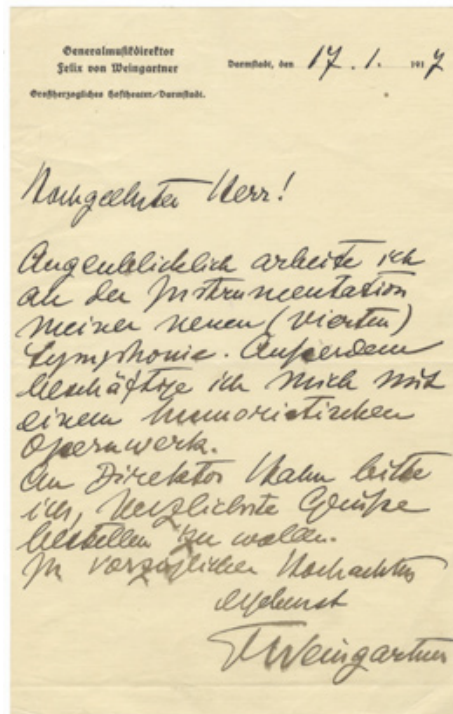 Generalmusikdirektor
Felix von Weingartner
Großherzogliches Hoftheater/Darmstadt.
Darmstadt, den 17. 1. 1917
Hochgeehrter Herr!
Augenblicklich arbeite ich
an der Instrumentation
meiner neuen (vierten)
Symphonie. Außerdem
beschäftige ich mich mit
einem humoristischen
Opernwerk.
An Direktor Hahn bitte
ich, herzlichste Grüße
bestellen zu wollen.
In vorzüglicher Hochachtung
ergebenst
FWeingartner